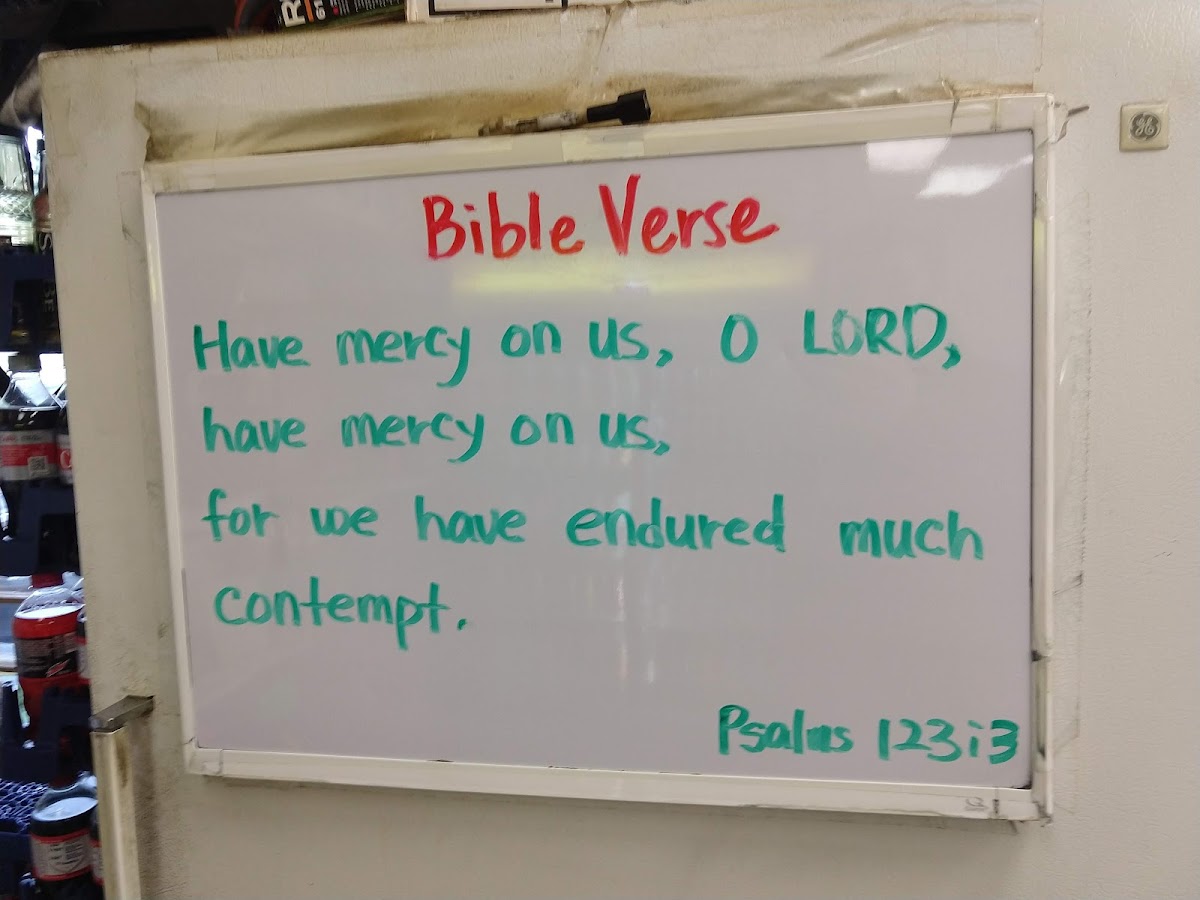 Bible Verse
Have mercy on us, O LORD,
have mercy on us,
for we have endured much
contempt.
Psalms 123:3
GE